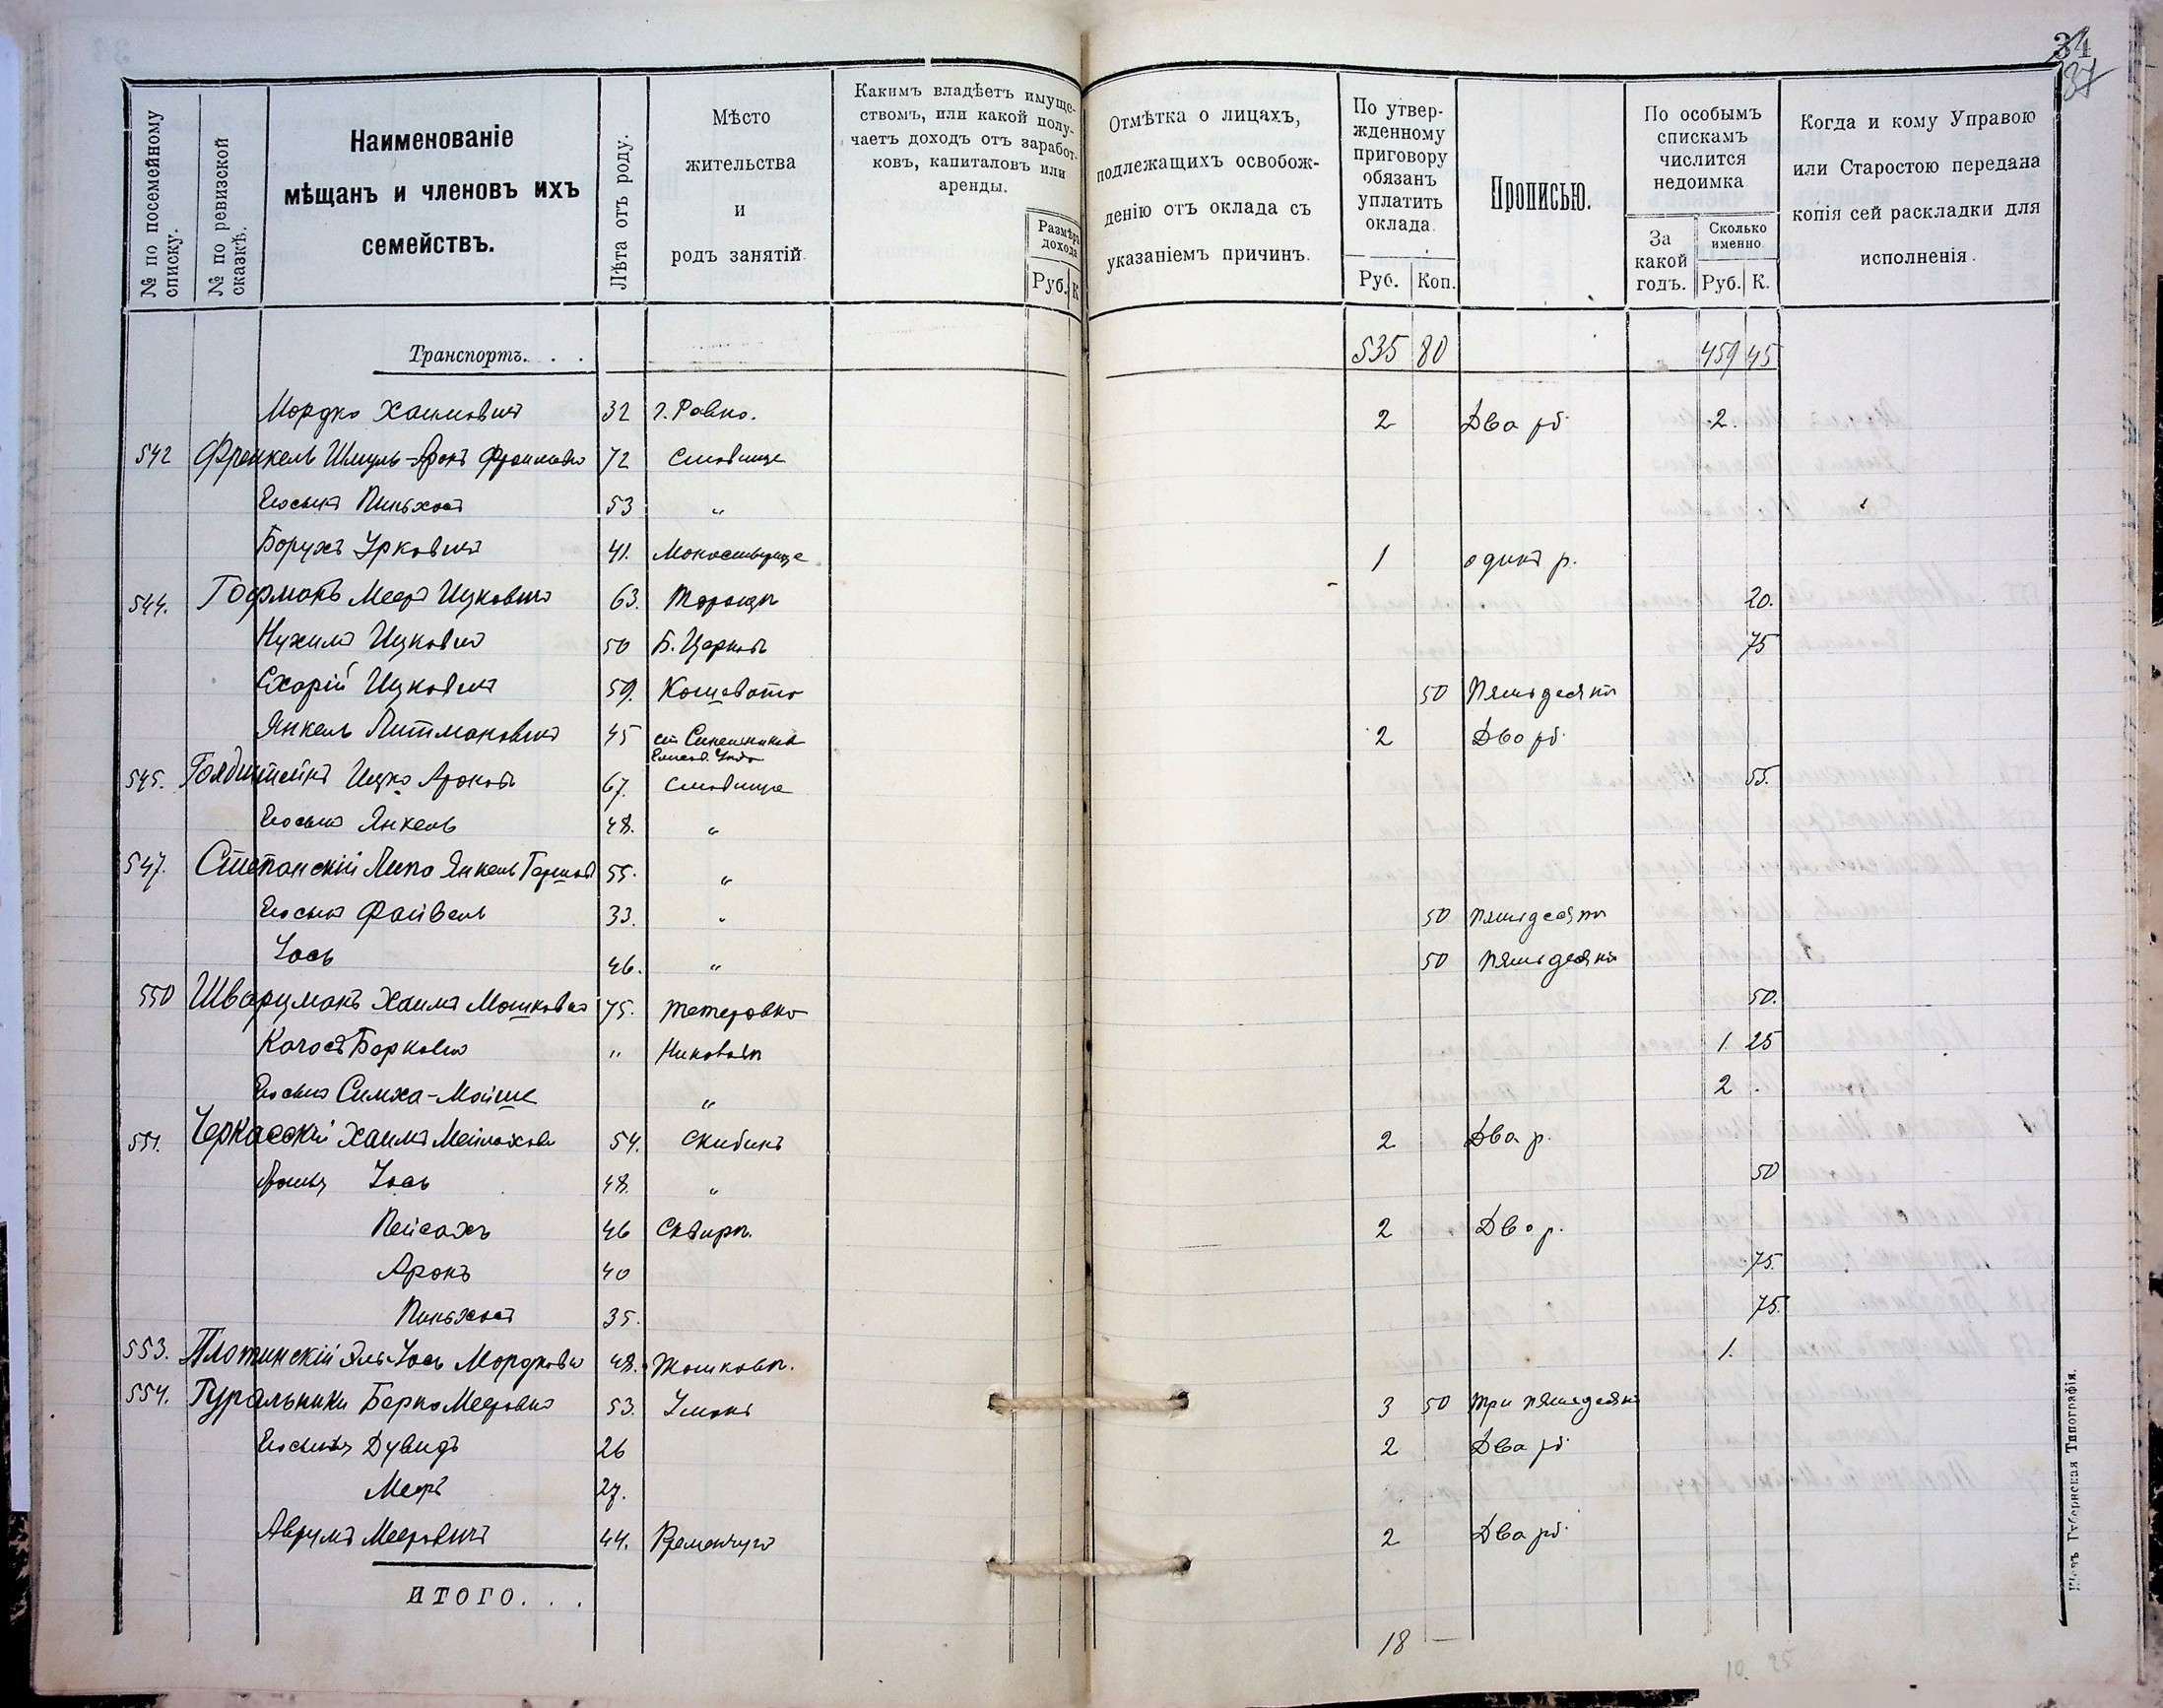 34
37
№ по посемейному списку.
№ по ревизской сказкѣ.
Наименованіе
мѣщанъ и членовъ ихъ
семействъ.
Лѣта отъ роду.
Мѣсто
жительства
и
родъ занятій.
Какимъ владѣетъ имуще-
ствомъ, или какой полу-
чаетъ доходъ отъ заработ-
ковъ, капиталовъ или
аренды.
Размѣръ
дохода
Руб. К
Отмѣтка о лицахъ,
подлежащихъ освобож-
денію отъ оклада съ
указаніемъ причинъ.
По утвер-
жденному
приговору
обязанъ
уплатить
оклада.
Руб. Коп.
Прописью.
По особымъ
спискамъ
числится
недоимка
За
какой
годъ.
Сколько
именно.
Руб. К.
Когда и кому Управою
или Старостою передана
копія сей раскладки для
исполненія.
Транспортъ. . . 535 80 459 45
Мордко Хаимовичъ 32 г. Ровно. 2 Два рб. 2.
542 Френкель Шмуль-Аронъ Фроимовъ 72 Ставище
Его сынъ Пинхасъ 53 "
Борухъ Урковичъ 41. Монастырище 1 одинъ р.
544. Гофманъ Мееръ Ицковичъ 63. Торица 20.
Нухимъ Ицковичъ 50 Б. Церковь 75
Схарій Ицковичъ 59. Кошевато 50 Пятьдесятъ
Янкель Питмановичъ 45 ст. Синельниково 2 Два рб.
545. Голдштейнъ Ицко Ароновъ 67. Ставище 55.
Его сынъ Янкель 48. "
547. Степанскій Липа Янкель Гершовъ 55. "
Его сынъ Файвель 33. " 50 пятьдесятъ
Іось 46. " 50 пятьдесятъ
550 Шварцманъ Хаимъ Мошковичъ 75. Тетеровка 50.
Берковичъ " 1. 25
Его сынъ Симха-Мойше " 2 .
551. Черкасскій Хаимъ Мейлахов 54. Скибинъ 2 Два р.
братья Іось 48. " 50
Пейсахъ 46 Сквира. 2 Два р.
Аронъ 40 75.
Пинхасъ 35. 75.
553. Плотинскій Эль-Іось Мордковъ 48. Жашковъ. 1.
554. Гуральники Берко Мееровичъ 53. Умань 3 50 три пятьдесятъ
Его сынья Дувидъ 26 2 Два рб.
Мееръ 27.
Аврумъ Мееровичъ 44. Кременчугъ 2 Два рб.
ИТОГО. . .
18 —
10. 25
Кіевъ Губернская Типографія.